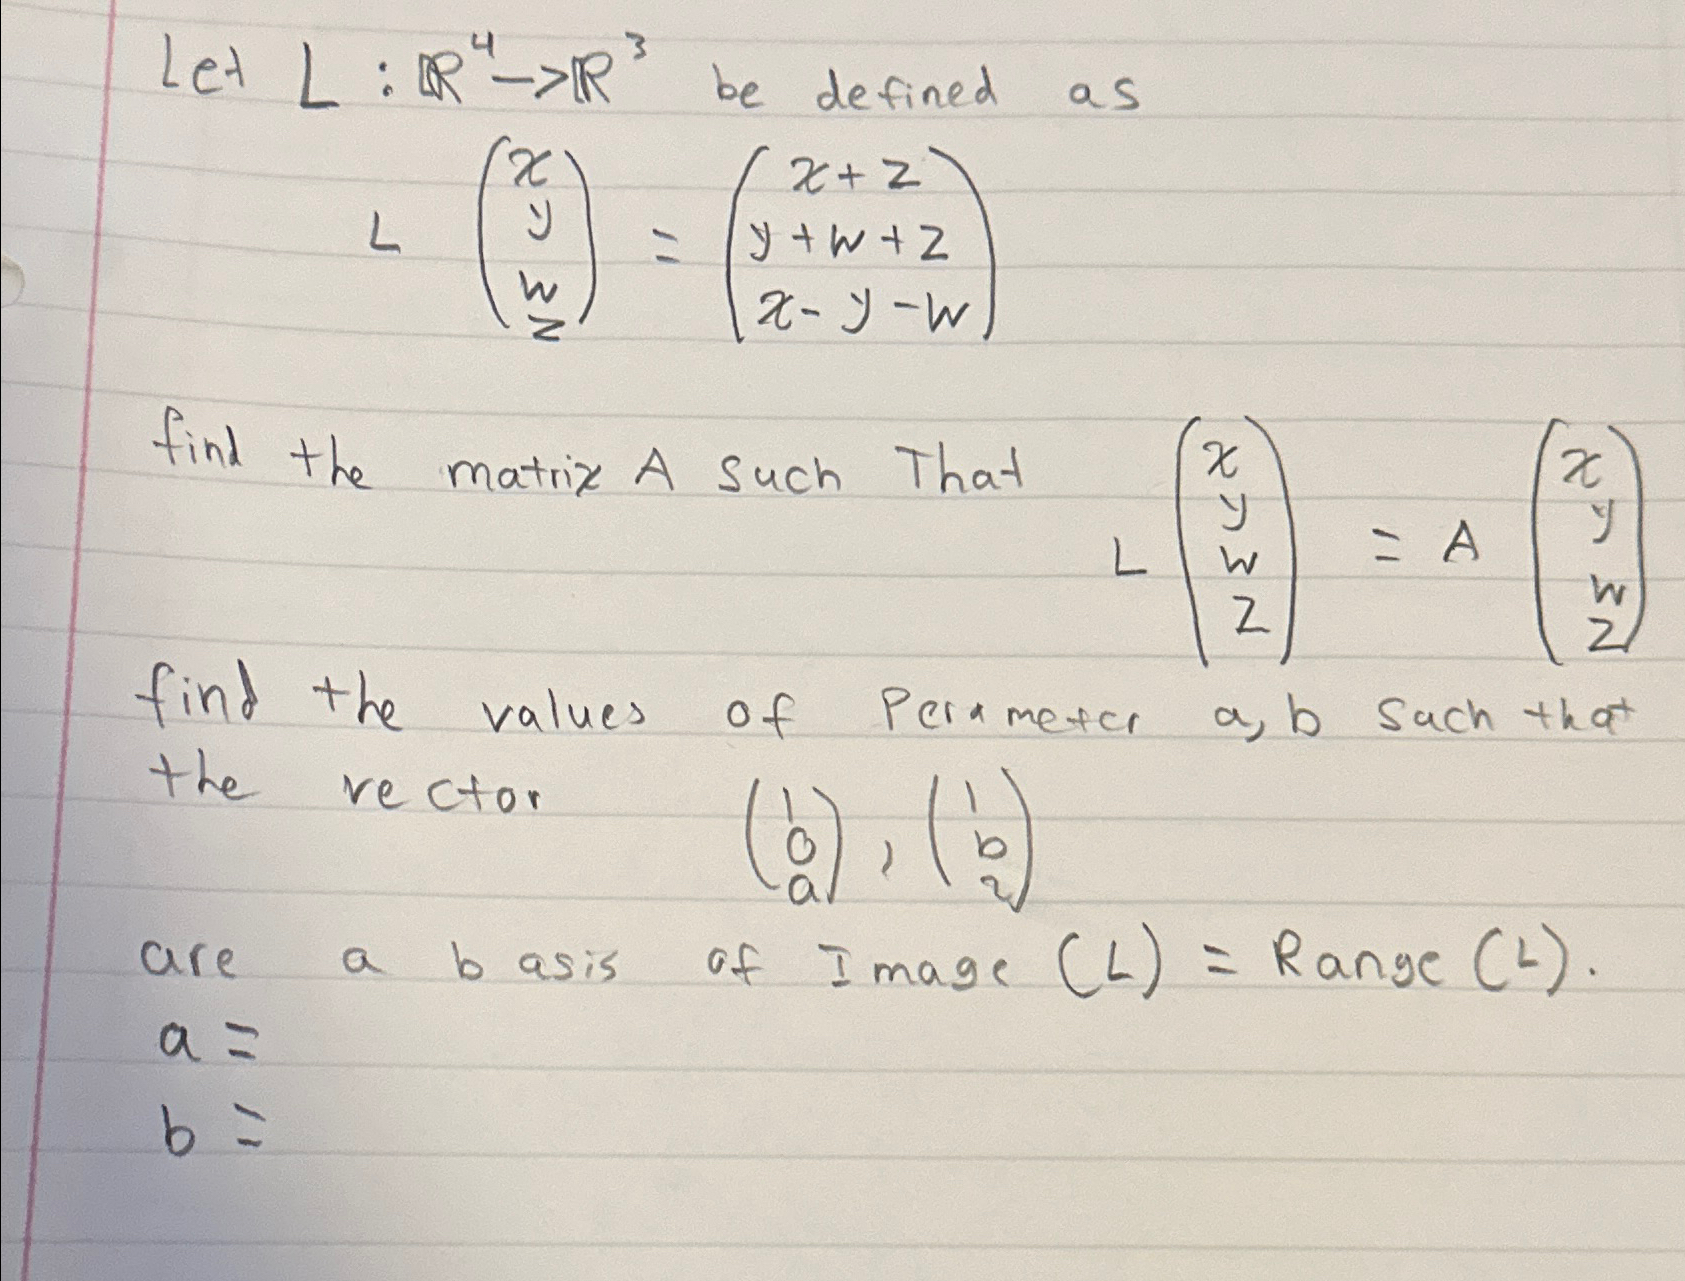 Let L : ℝ⁴ -> ℝ³ be defined as
L (x y w z) = (x + z, y + w + z, x - y - w)
find the matrix A such That L (x y w z) = A (x y w z)
find the values of Perameter a, b such that
the vector (1 0 a), (1 b 2)
are a basis of Image (L) = Range (L).
a =
b =